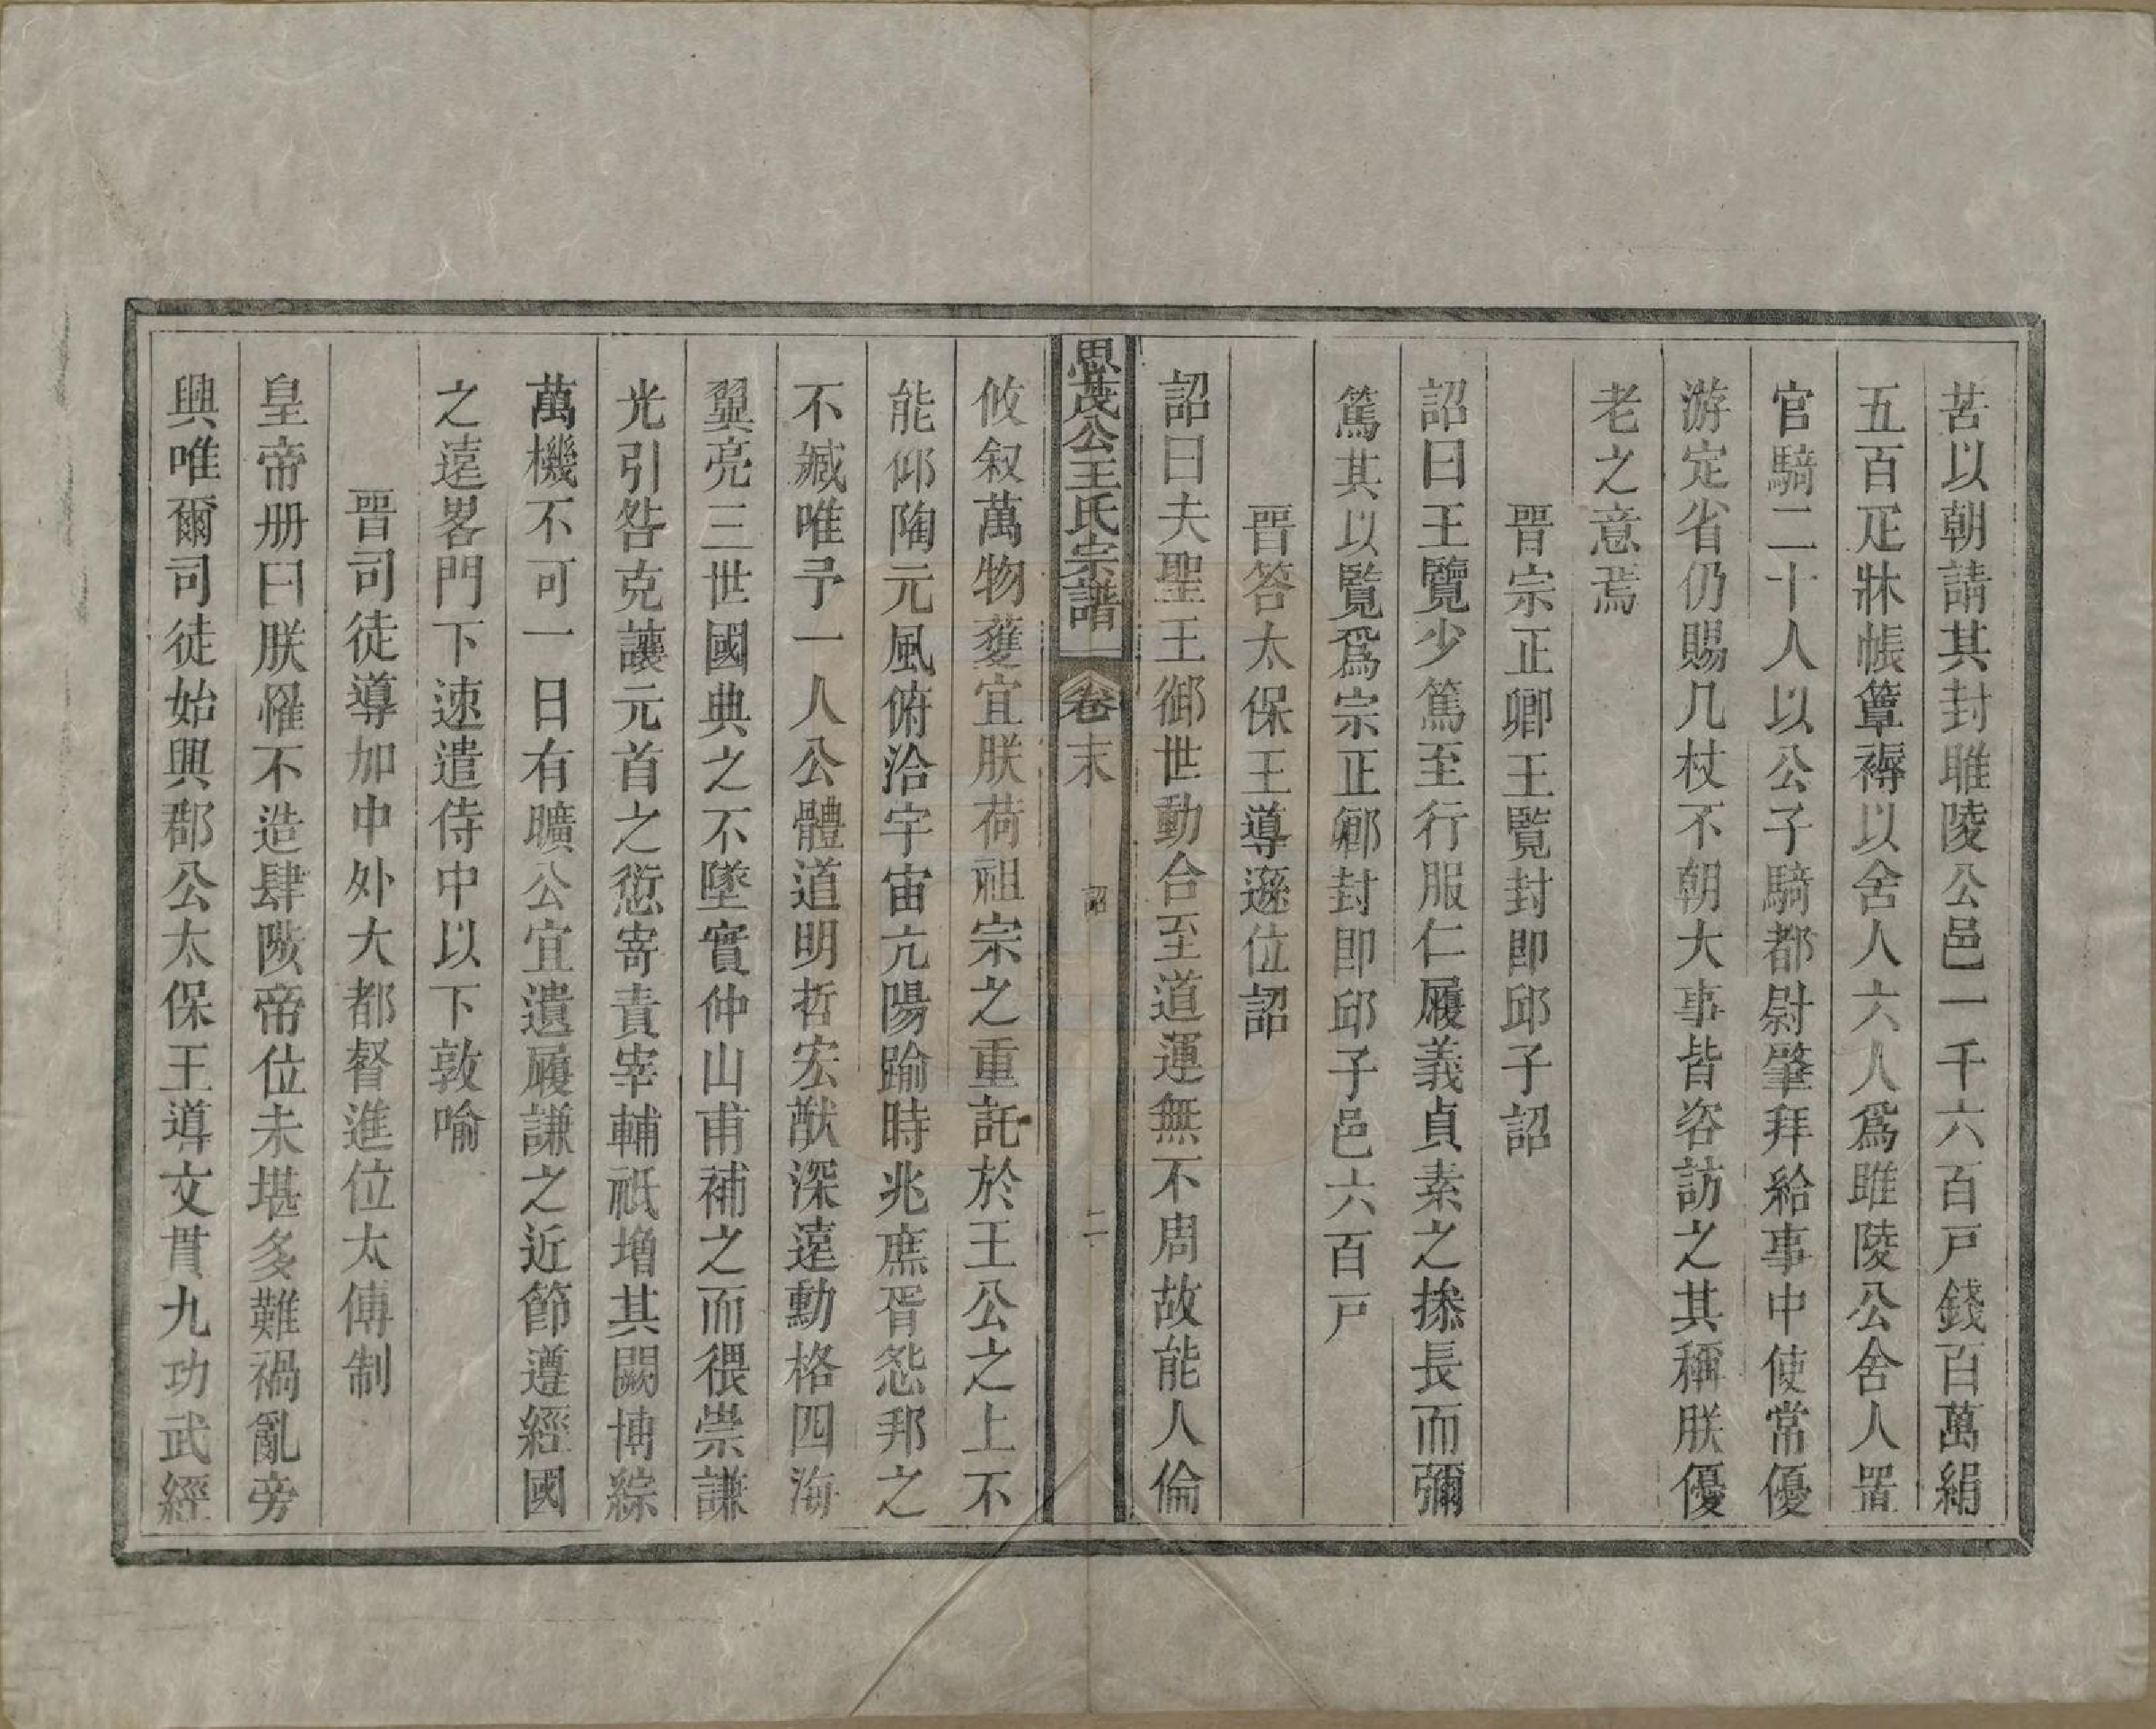 苦以朝請其封睢陵公邑一千六百戸錢百萬絹
五百疋牀帳簟褥以舍人六人爲睢陵公舍人置
官騎二十人以公子騎都尉肇拜給事中使常優
游定省仍賜几杖不朝大事皆咨訪之其稱朕優
老之意焉
晋宗正卿王覧封即邱子詔
詔曰王覽少篤至行服仁履義貞素之操長而彌
篤其以覧爲宗正卿封即邱子邑六百戸
晋答太保王導遜位詔
詔曰夫聖王御世動合至道運無不周故能人倫
思茂公王氏宗譜
卷末
詔
二
攸叙萬物獲宜朕荷祖宗之重託於王公之上不
能仰陶元風俯洽宇宙亢陽踰時兆庶胥怨邦之
不臧唯予一人公體道明哲宏猷深遠勳格四海
翼亮三世國典之不墜實仲山甫補之而猥崇謙
光引咎克讓元首之愆寄責宰輔祇增其闕博綜
萬機不可一日有曠公宜遺履謙之近節遵經國
之遠畧門下速遣侍中以下敦喻
晋司徒導加中外大都督進位太傅制
皇帝册曰朕罹不造肆陟帝位未堪多難禍亂旁
興唯爾司徒始興郡公太保王導文貫九功武經